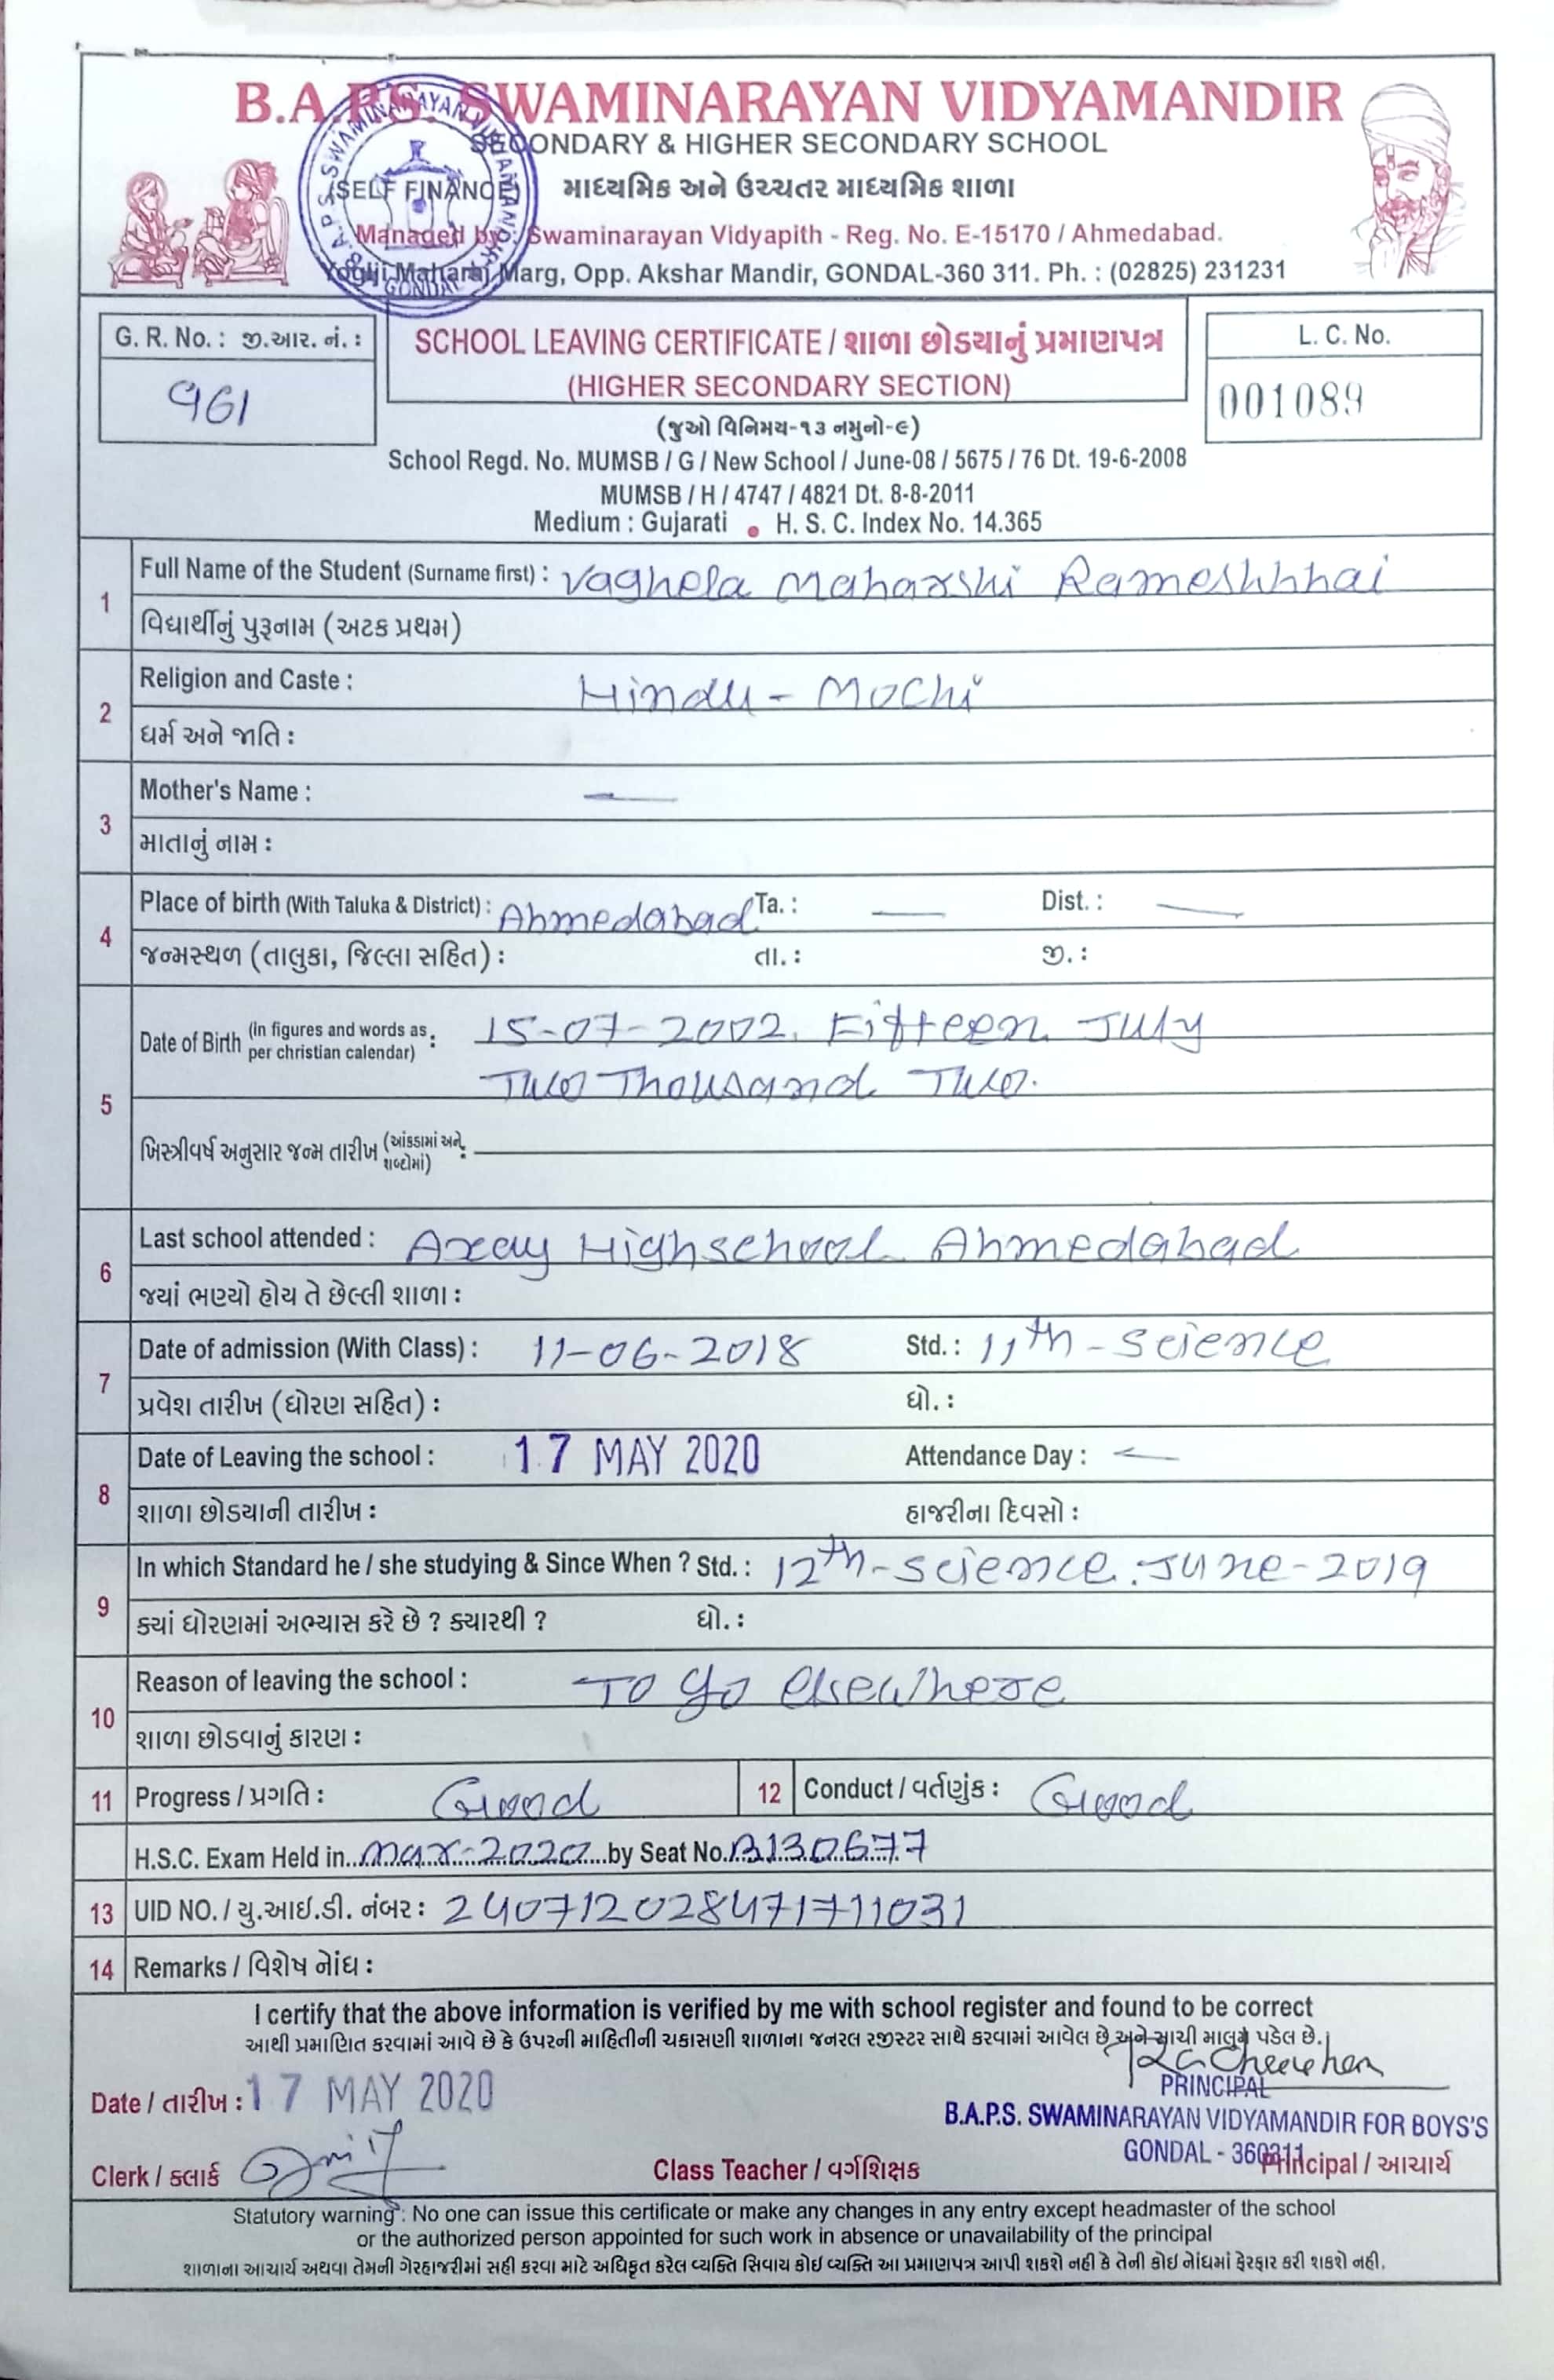 B.A.P.S. SWAMINARAYAN VIDYAMANDIR
SECONDARY & HIGHER SECONDARY SCHOOL
(SELF FINANCE) માધ્યમિક અને ઉચ્ચતર માધ્યમિક શાળા
Managed by : Swaminarayan Vidyapith - Reg. No. E-15170 / Ahmedabad.
Yogiji Maharaj Marg, Opp. Akshar Mandir, GONDAL-360 311. Ph. : (02825) 231231
G. R. No. : જી.આર. નં. :
961
SCHOOL LEAVING CERTIFICATE / શાળા છોડયાનું પ્રમાણપત્ર
(HIGHER SECONDARY SECTION)
L. C. No.
001089
(જુઓ વિનિમય-૧૩ નમુનો-૯)
School Regd. No. MUMSB / G / New School / June-08 / 5675 / 76 Dt. 19-6-2008
MUMSB / H / 4747 / 4821 Dt. 8-8-2011
Medium : Gujarati • H. S. C. Index No. 14.365
1 Full Name of the Student (Surname first) : Vaghela Maharshi Rameshbhai
વિદ્યાર્થીનું પુરૂનામ (અટક પ્રથમ)
2 Religion and Caste : Hindu - Mochi
ધર્મ અને જાતિ :
3 Mother's Name : —
માતાનું નામ :
4 Place of birth (With Taluka & District) : Ahmedabad Ta. : — Dist. : —
જન્મસ્થળ (તાલુકા, જિલ્લા સહિત) : તા. : જી. :
5 Date of Birth (in figures and words as per christian calendar) : 15-07-2002. Fifteen July
Two Thousand Two.
ખ્રિસ્તીવર્ષ અનુસાર જન્મ તારીખ (આંકડામાં અને શબ્દોમાં) :
6 Last school attended : Axay Highschool Ahmedabad
જયાં ભણ્યો હોય તે છેલ્લી શાળા :
7 Date of admission (With Class) : 11-06-2018 Std. : 11th - science
પ્રવેશ તારીખ (ધોરણ સહિત) : ધો. :
8 Date of Leaving the school : 17 MAY 2020 Attendance Day : —
શાળા છોડયાની તારીખ : હાજરીના દિવસો :
9 In which Standard he / she studying & Since When ? Std. : 12th - science. June-2019
ક્યાં ધોરણમાં અભ્યાસ કરે છે ? ક્યારથી ? ધો. :
10 Reason of leaving the school : To go elsewhere
શાળા છોડવાનું કારણ :
11 Progress / પ્રગતિ : Good 12 Conduct / વર્તણુંક : Good
H.S.C. Exam Held in..Mar-2020..by Seat No..B130677
13 UID NO. / યુ.આઇ.ડી. નંબર : 240712028471711031
14 Remarks / વિશેષ નોંધ :
I certify that the above information is verified by me with school register and found to be correct
આથી પ્રમાણિત કરવામાં આવે છે કે ઉપરની માહિતીની ચકાસણી શાળાના જનરલ રજીસ્ટર સાથે કરવામાં આવેલ છે અને સાચી માલુમ પડેલ છે.
Date / તારીખ : 17 MAY 2020
PRINCIPAL
B.A.P.S. SWAMINARAYAN VIDYAMANDIR FOR BOYS'S
GONDAL - 360311
Clerk / ક્લાર્ક Class Teacher / વર્ગશિક્ષક Principal / આચાર્ય
Statutory warning : No one can issue this certificate or make any changes in any entry except headmaster of the school
or the authorized person appointed for such work in absence or unavailability of the principal
શાળાના આચાર્ય અથવા તેમની ગેરહાજરીમાં સહી કરવા માટે અધિકૃત કરેલ વ્યક્તિ સિવાય કોઇ વ્યક્તિ આ પ્રમાણપત્ર આપી શકશે નહી કે તેની કોઇ નોંધમાં ફેરફાર કરી શકશે નહી.